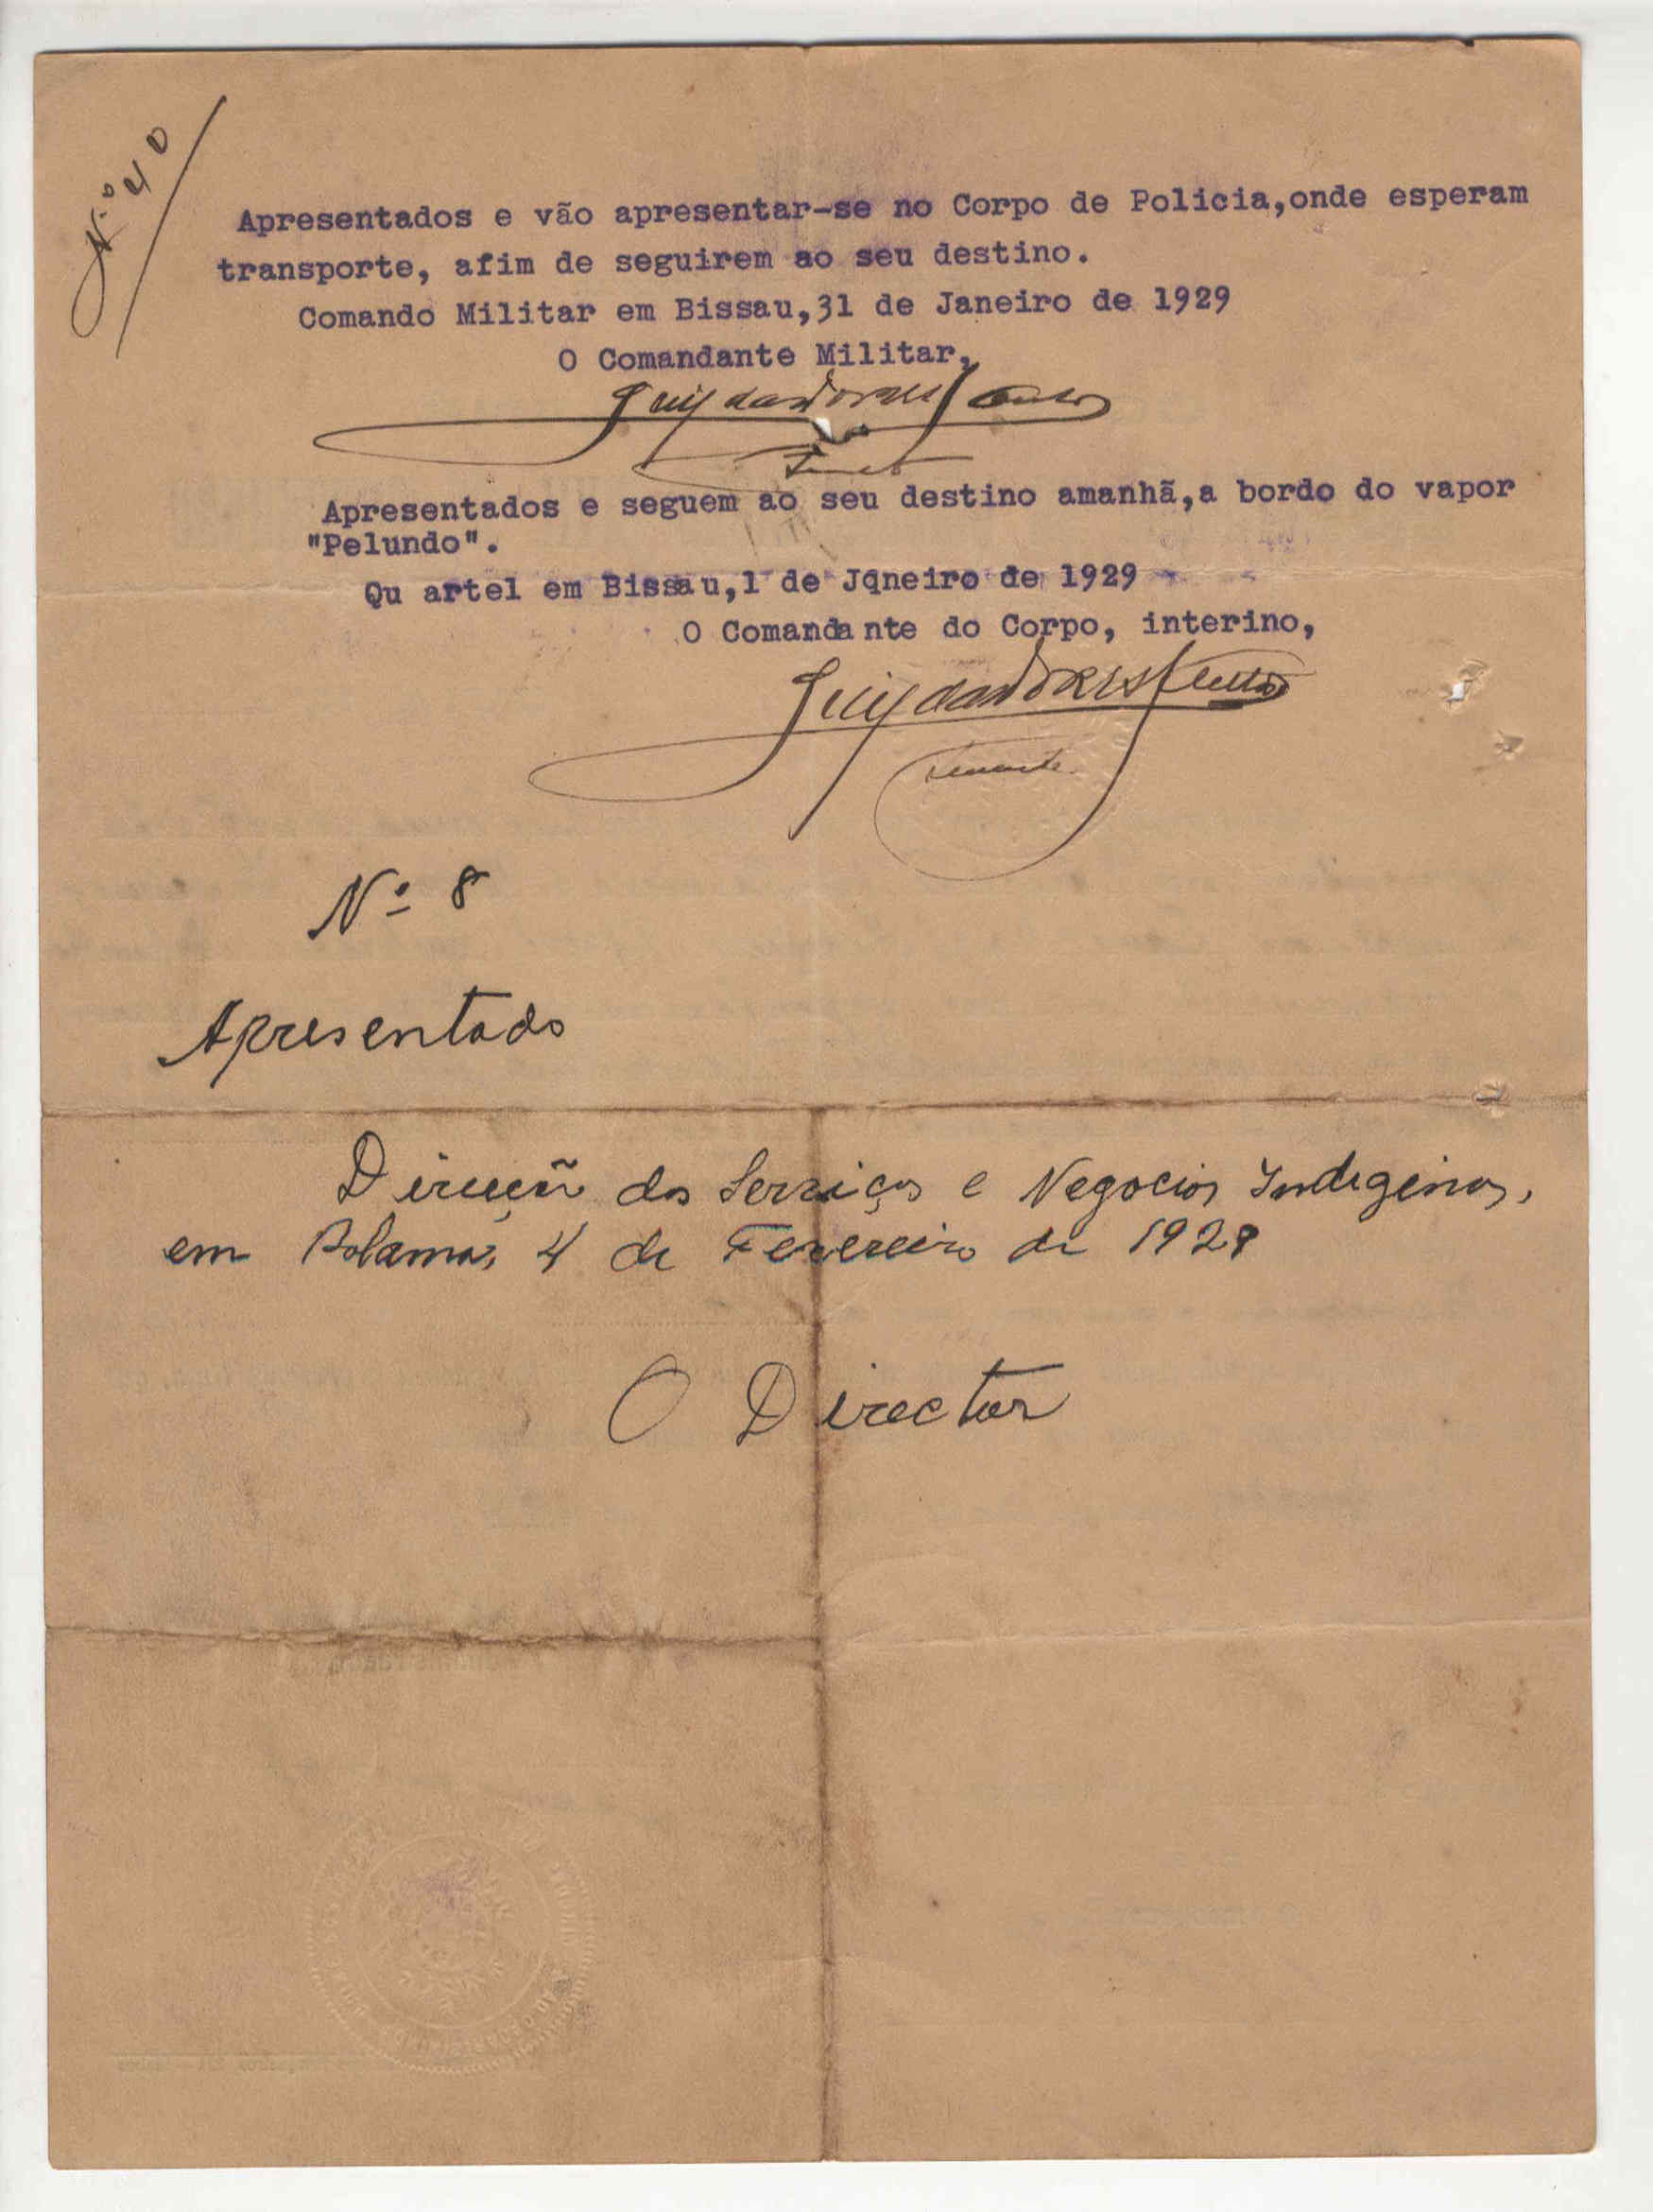 N.º 40
Apresentados e vão apresentar-se no Corpo de Policia,onde esperam
transporte, afim de seguirem ao seu destino.
Comando Militar em Bissau,31 de Janeiro de 1929
O Comandante Militar,
Apresentados e seguem ao seu destino amanhã,a bordo do vapor
"Pelundo".
Qu artel em Bissau,1 de Jqneiro de 1929
O Comandante do Corpo, interino,
Tenente
Nº 8
Apresentado
Direcção dos Serviços e Negocios Indigenas,
em Bolama, 4 de Fevereiro de 1929
O Director